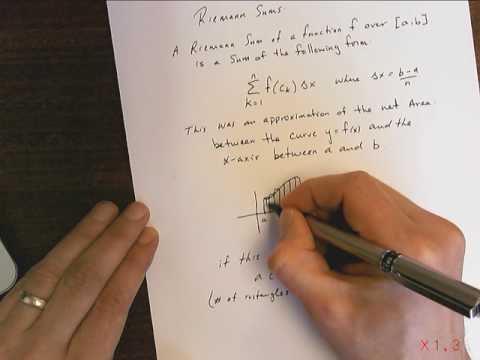 Riemann Sums
A Riemann Sum of a function f over [a,b]
is a Sum of the following form:
n
∑ f(c_k) Δx where Δx = b-a/n
k=1
This was an approximation of the net Area
between the curve y=f(x) and the
x-axis between a and b
a
if this
a c
(# of rectangles
X1.3